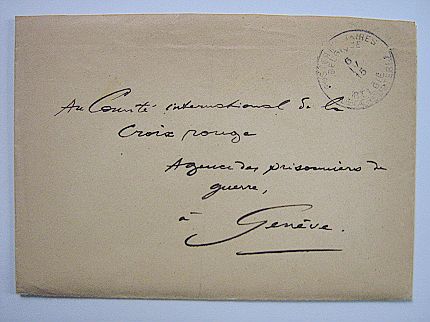 Au Comité international de la
Croix rouge
Agence des prisonniers de
guerre,
à Genève.